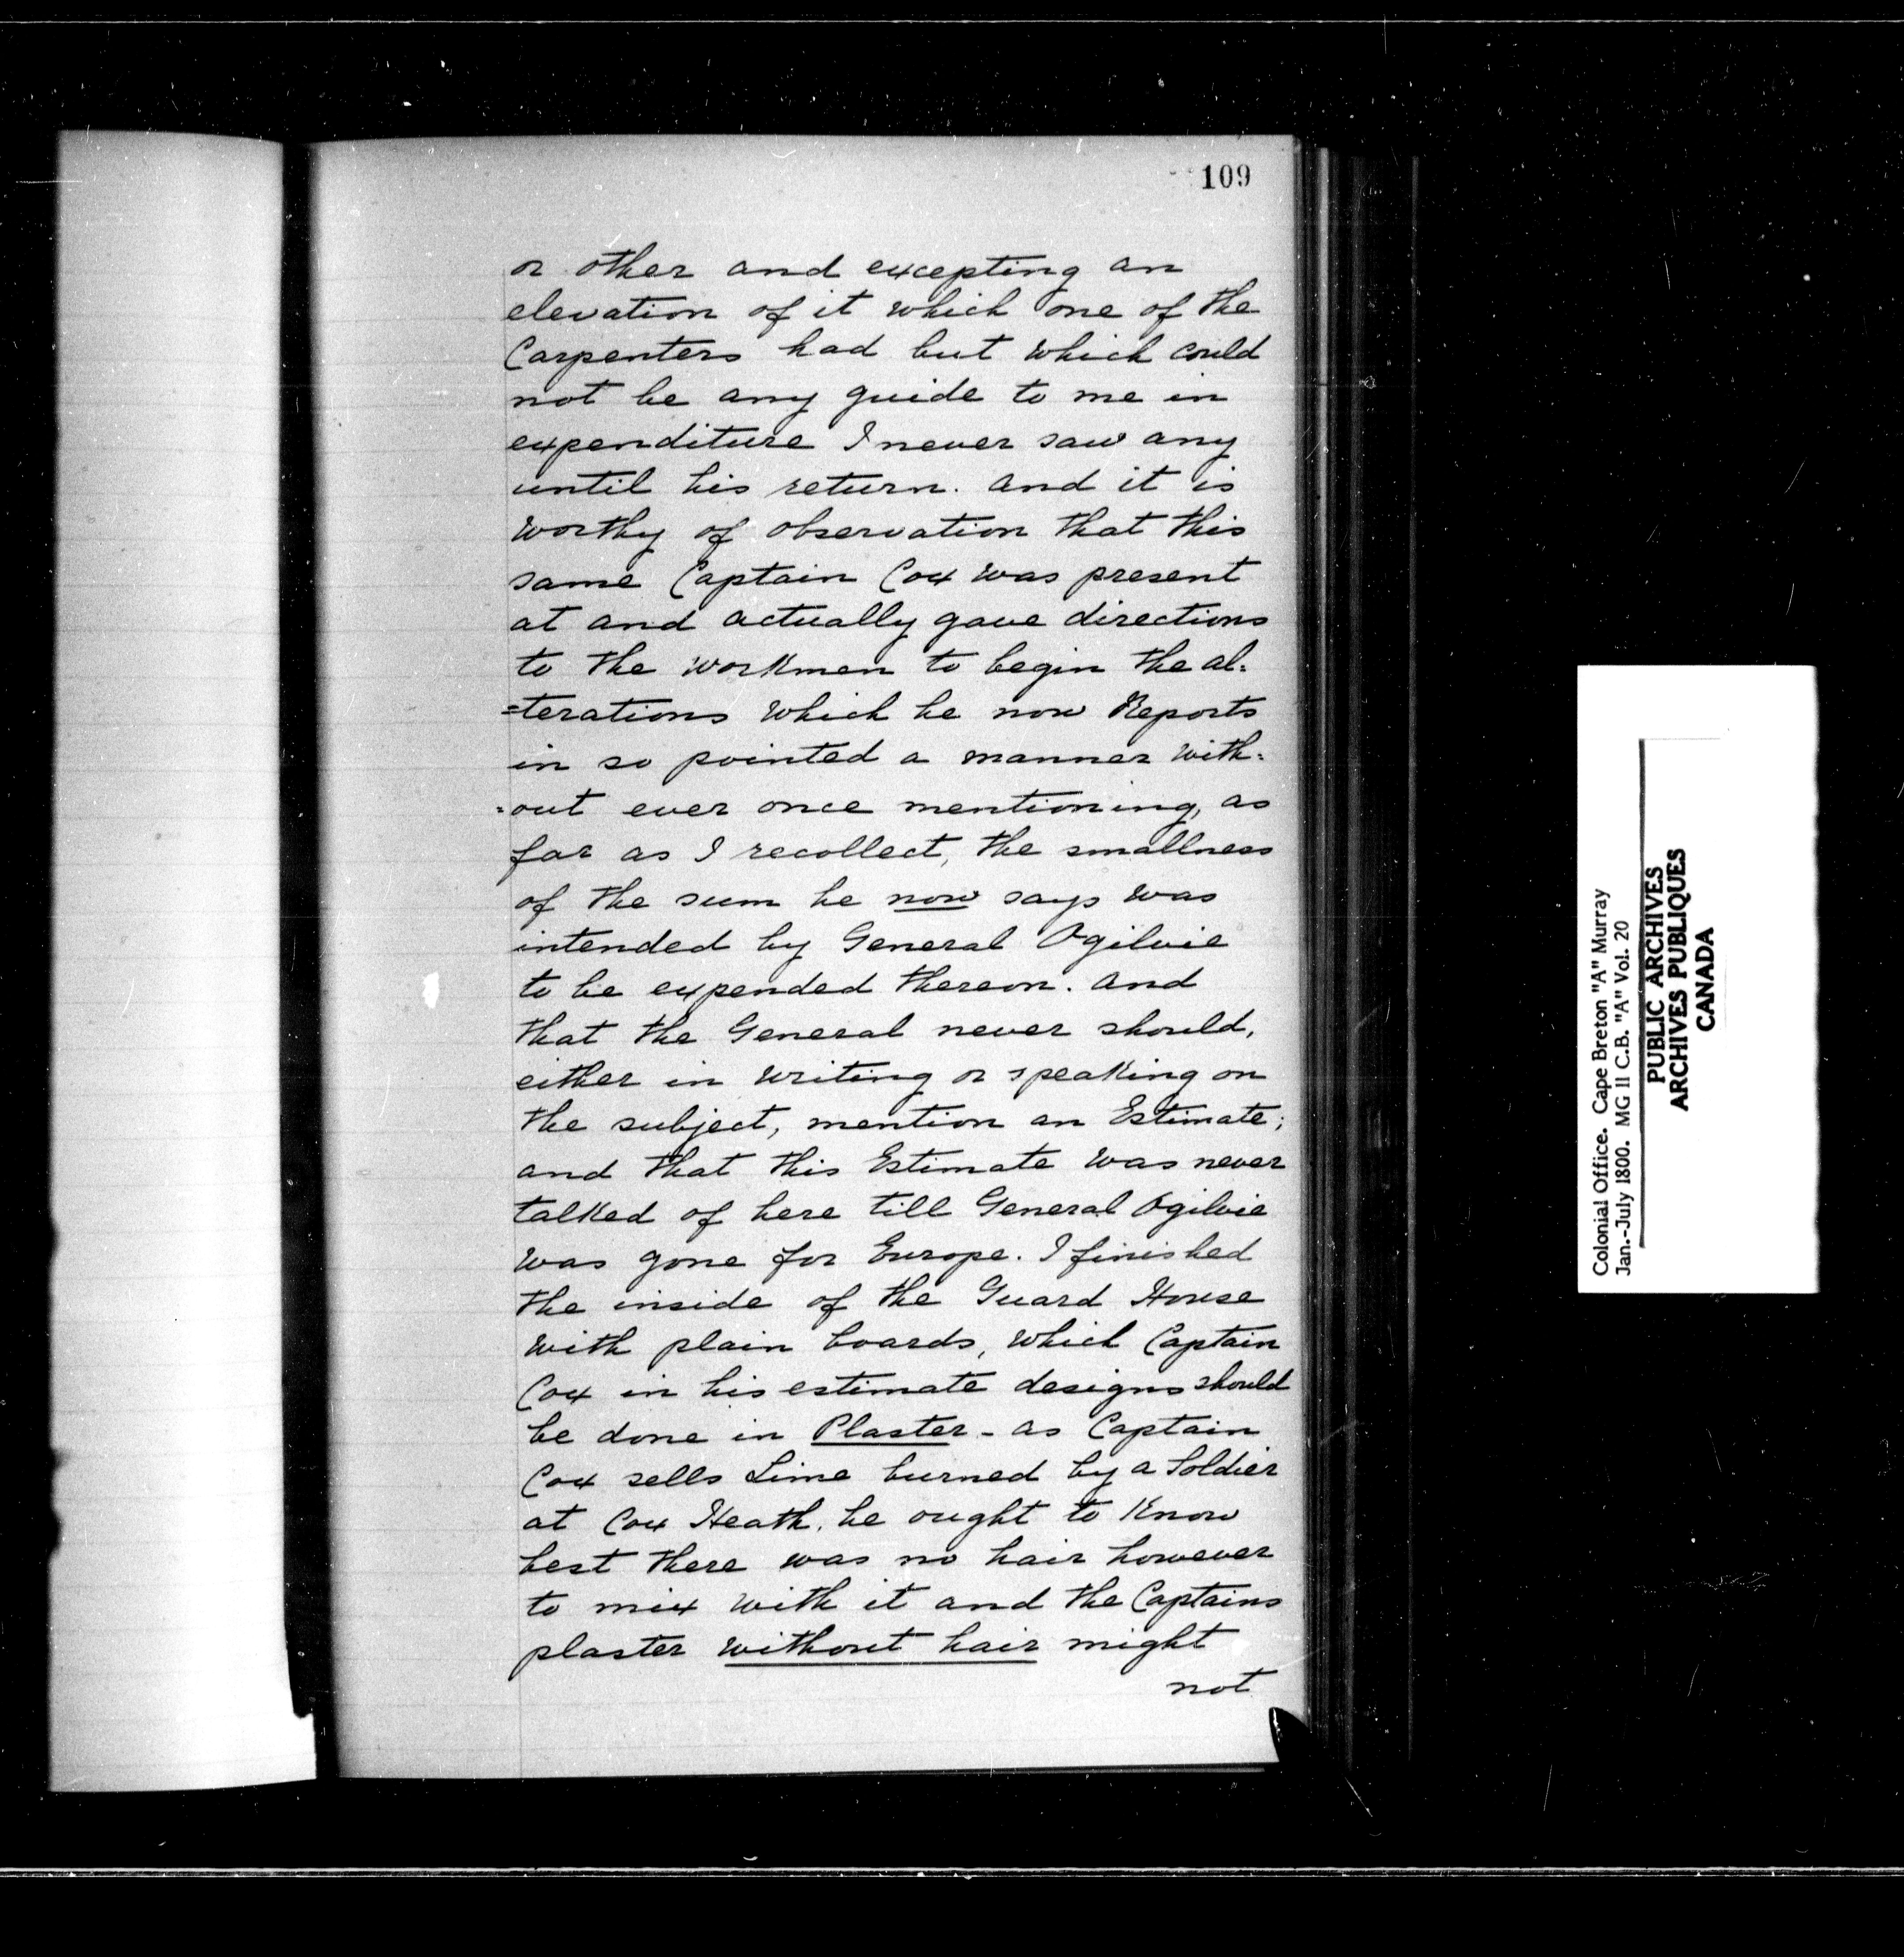 109
or other and excepting an
elevation of it which one of the
Carpenters had but which could
not be any guide to me in
expenditure I never saw any
until his return. And it is
worthy of observation that this
same Captain Cox was present
at and actually gave directions
to the workmen to begin the al=
=terations which he now Reports
in so pointed a manner with=
=out ever once mentioning, as
far as I recollect, the smallness
of the sum he now says was
intended by General Ogilvie
to be expended thereon. And
that the General never should,
either in writing or speaking on
the subject, mention an Estimate;
and that this Estimate was never
talked of here till General Ogilvie
was gone for Europe. I finished
the inside of the Guard House
with plain boards, which Captain
Cox in his estimate designs should
be done in Plaster - as Captain
Cox sells Lime burned by a Soldier
at Cox Heath, he ought to know
best there was no hair however
to mix with it and the Captains
plaster without hair might
not
Colonial Office. Cape Breton "A" Murray
Jan.-July 1800. MG 11 C.B. "A" Vol. 20
PUBLIC ARCHIVES
ARCHIVES PUBLIQUES
CANADA